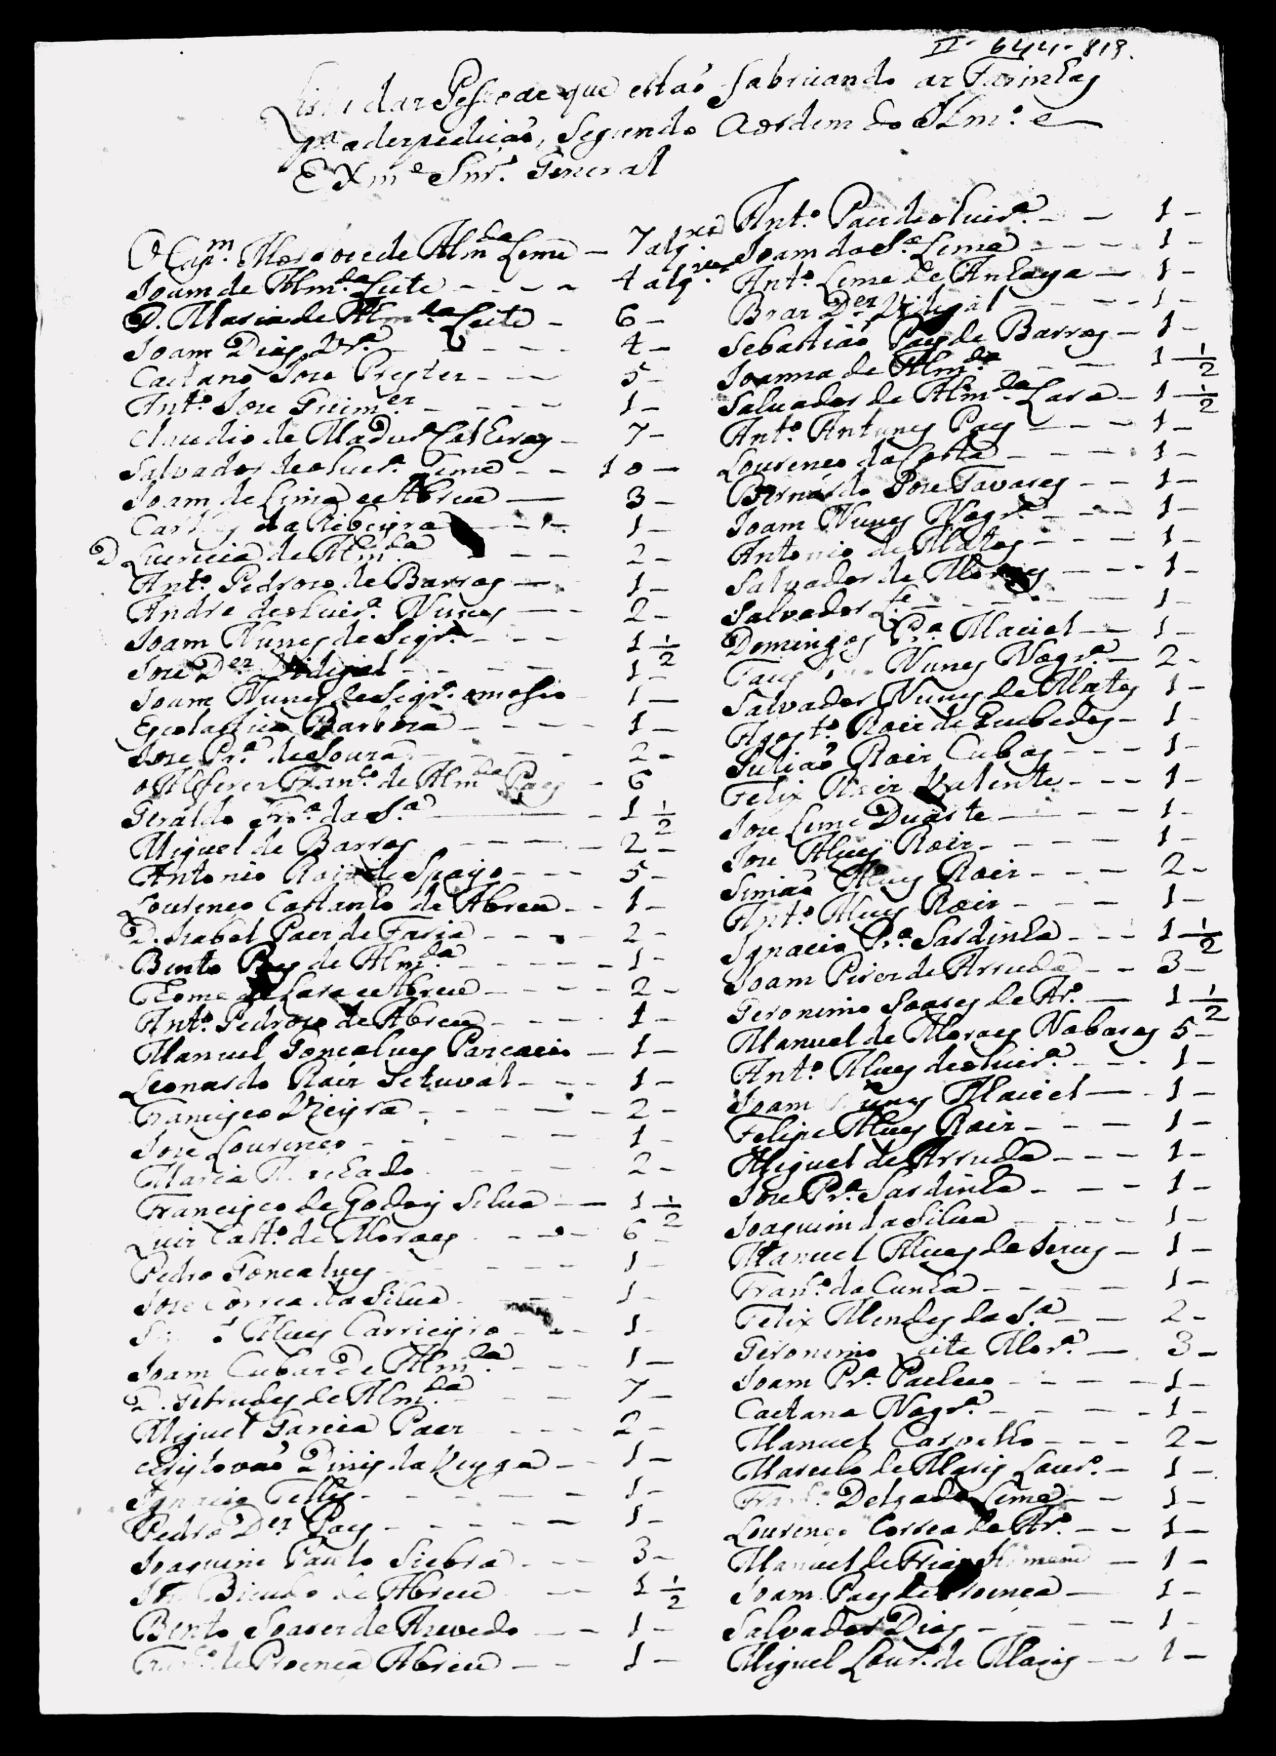 II-644-819.
Lista dar Pessoae que estaõ fabricando ar Farinhas
pª aderpediçaõ, Segundo Aordem do Illmº e
EXmº Snr. General
O Capm. de Almda Leme — 7 alqres
Joam de Almda Leite — 4 alqres
D. Maria de Almda Leite — 6 —
Joam Dias Vrª — 4 —
Caetano Jose Prester — 5 —
Antº Jose Guimer — 1 —
Claudio de Madurª Calheros — 7 —
Salvador deolivrª Leme — 10 —
Joam de Lima e Abreu — 3 —
da Ribeyra — 1 —
D Lucrecia de Almda — 2 —
Antº Pedroso de Barros — 1 —
Andre deolivrª Nunes — 2 —
Joam Nunes de Siqrª — 1 1/2
Jose Der Vidigal — 1 —
Joam Nunes de Siqrª omosso — 1 —
Escolastica Barbosa — 1 —
Jose Prª de Souza — 2 —
o Alferer Franco de Almda Paes — 6
Geraldo Frrª da Sª — 1 1/2
Miguel de Barros — 2 —
Antonio Roiz de Spojo — 5 —
Lourenço Castanho de Abreu — 1 —
D. Izabel Paer de Faria — 2 —
Bento Paes de Almda — 1 —
Thome de Lara e Abreu — 2 —
Antº Pedroso de Abreu — 1 —
Manuel Goncalves — 1 —
Leonardo Roir Setuval — 1 —
Francisco Vieyra — 2 —
Jose Lourenço — 1 —
Maria Machado — 2 —
Francisco de Godoy Silva — 1 1/2
Luir Castº de Moraes — 6 —
Pedro Goncalves — 1 —
Jose Correa da Silva — 1 —
Alves Carrieyro — 1 —
Joam Cubar de Almda — 1 —
D. Getrudes de Almda — 7 —
Miguel Garcia Paer — 2 —
Cristovaõ Dinis da — 1 —
Ignacio Telles — 1 —
Pedro Der Paes — 1 —
Joaquim Paulo Siebra — 3 —
Bicudo de Abreu — 1 1/2
Bento Soarer de Azevedo — 1 —
Franco de Proença Abreu — 1 —
Antº Paer de olivrª — 1 —
Joam da Sª Leme — 1 —
Antº Leme de Anhaya — 1 —
Brar Der Vidigal — 1 —
Sebastiaõ Paes de Barros — 1 —
Joanna de Almda — 1 1/2
Salvador de Almda Lara — 1 1/2
Antº Antunes Paes — 1 —
Lourenco da Costa — 1 —
Bernardo Jose Tavares — 1 —
Joam Nunes Nogrª — 1 —
Antonio de Matos — 1 —
Salvador de Moraes — 1 —
Salvador Le — 1 —
Domingos Prª Maciel — 1 —
Nunes Nogrª — 2 —
Salvador Nunes de Matos 1 —
Agostº Roir de Quebedos — 1 —
Juliaõ Roir Cubas — 1 —
Felix Roir Valente — 1 —
Jose Leme Duarte — 1 —
Jose Alves Roir — 1 —
Simiaõ Alves Roir — 2 —
Antº Alves Roir — 1 —
Ignacio Prª Sardinha — 1 1/2
Joam Pirer de Arruda — 3 —
Geronimo Soares de Arº — 1 1/2
Manuel de Moraes Nabares 5 —
Antº Alves deolivrª — 1 —
Joam Nunes Maciel — 1 —
Felipe Alves Roir — 1 —
Miguel de Arruda — 1 —
Jose Prª Sardinha — 1 —
Joaquim da Silva — 1 —
Manuel Alves de — 1 —
Franco da Cunha — 1 —
Felix Mendes da Sª — 2 —
Geronimo Leite Morª — 3 —
Joam Prª Pacheco — 1 —
Caetana Nogrª — 1 —
Manuel Carvalho — 2 —
Marcelo de Maris Lour. — 1 —
Franco Delgado Leme — 1 —
Lourenço Correa de Arº — 1 —
Manuel de Frias — 1 —
Joam Paes de Proença — 1 —
Salvador Dias — 1 —
Miguel Lour. de Maris — 1 —